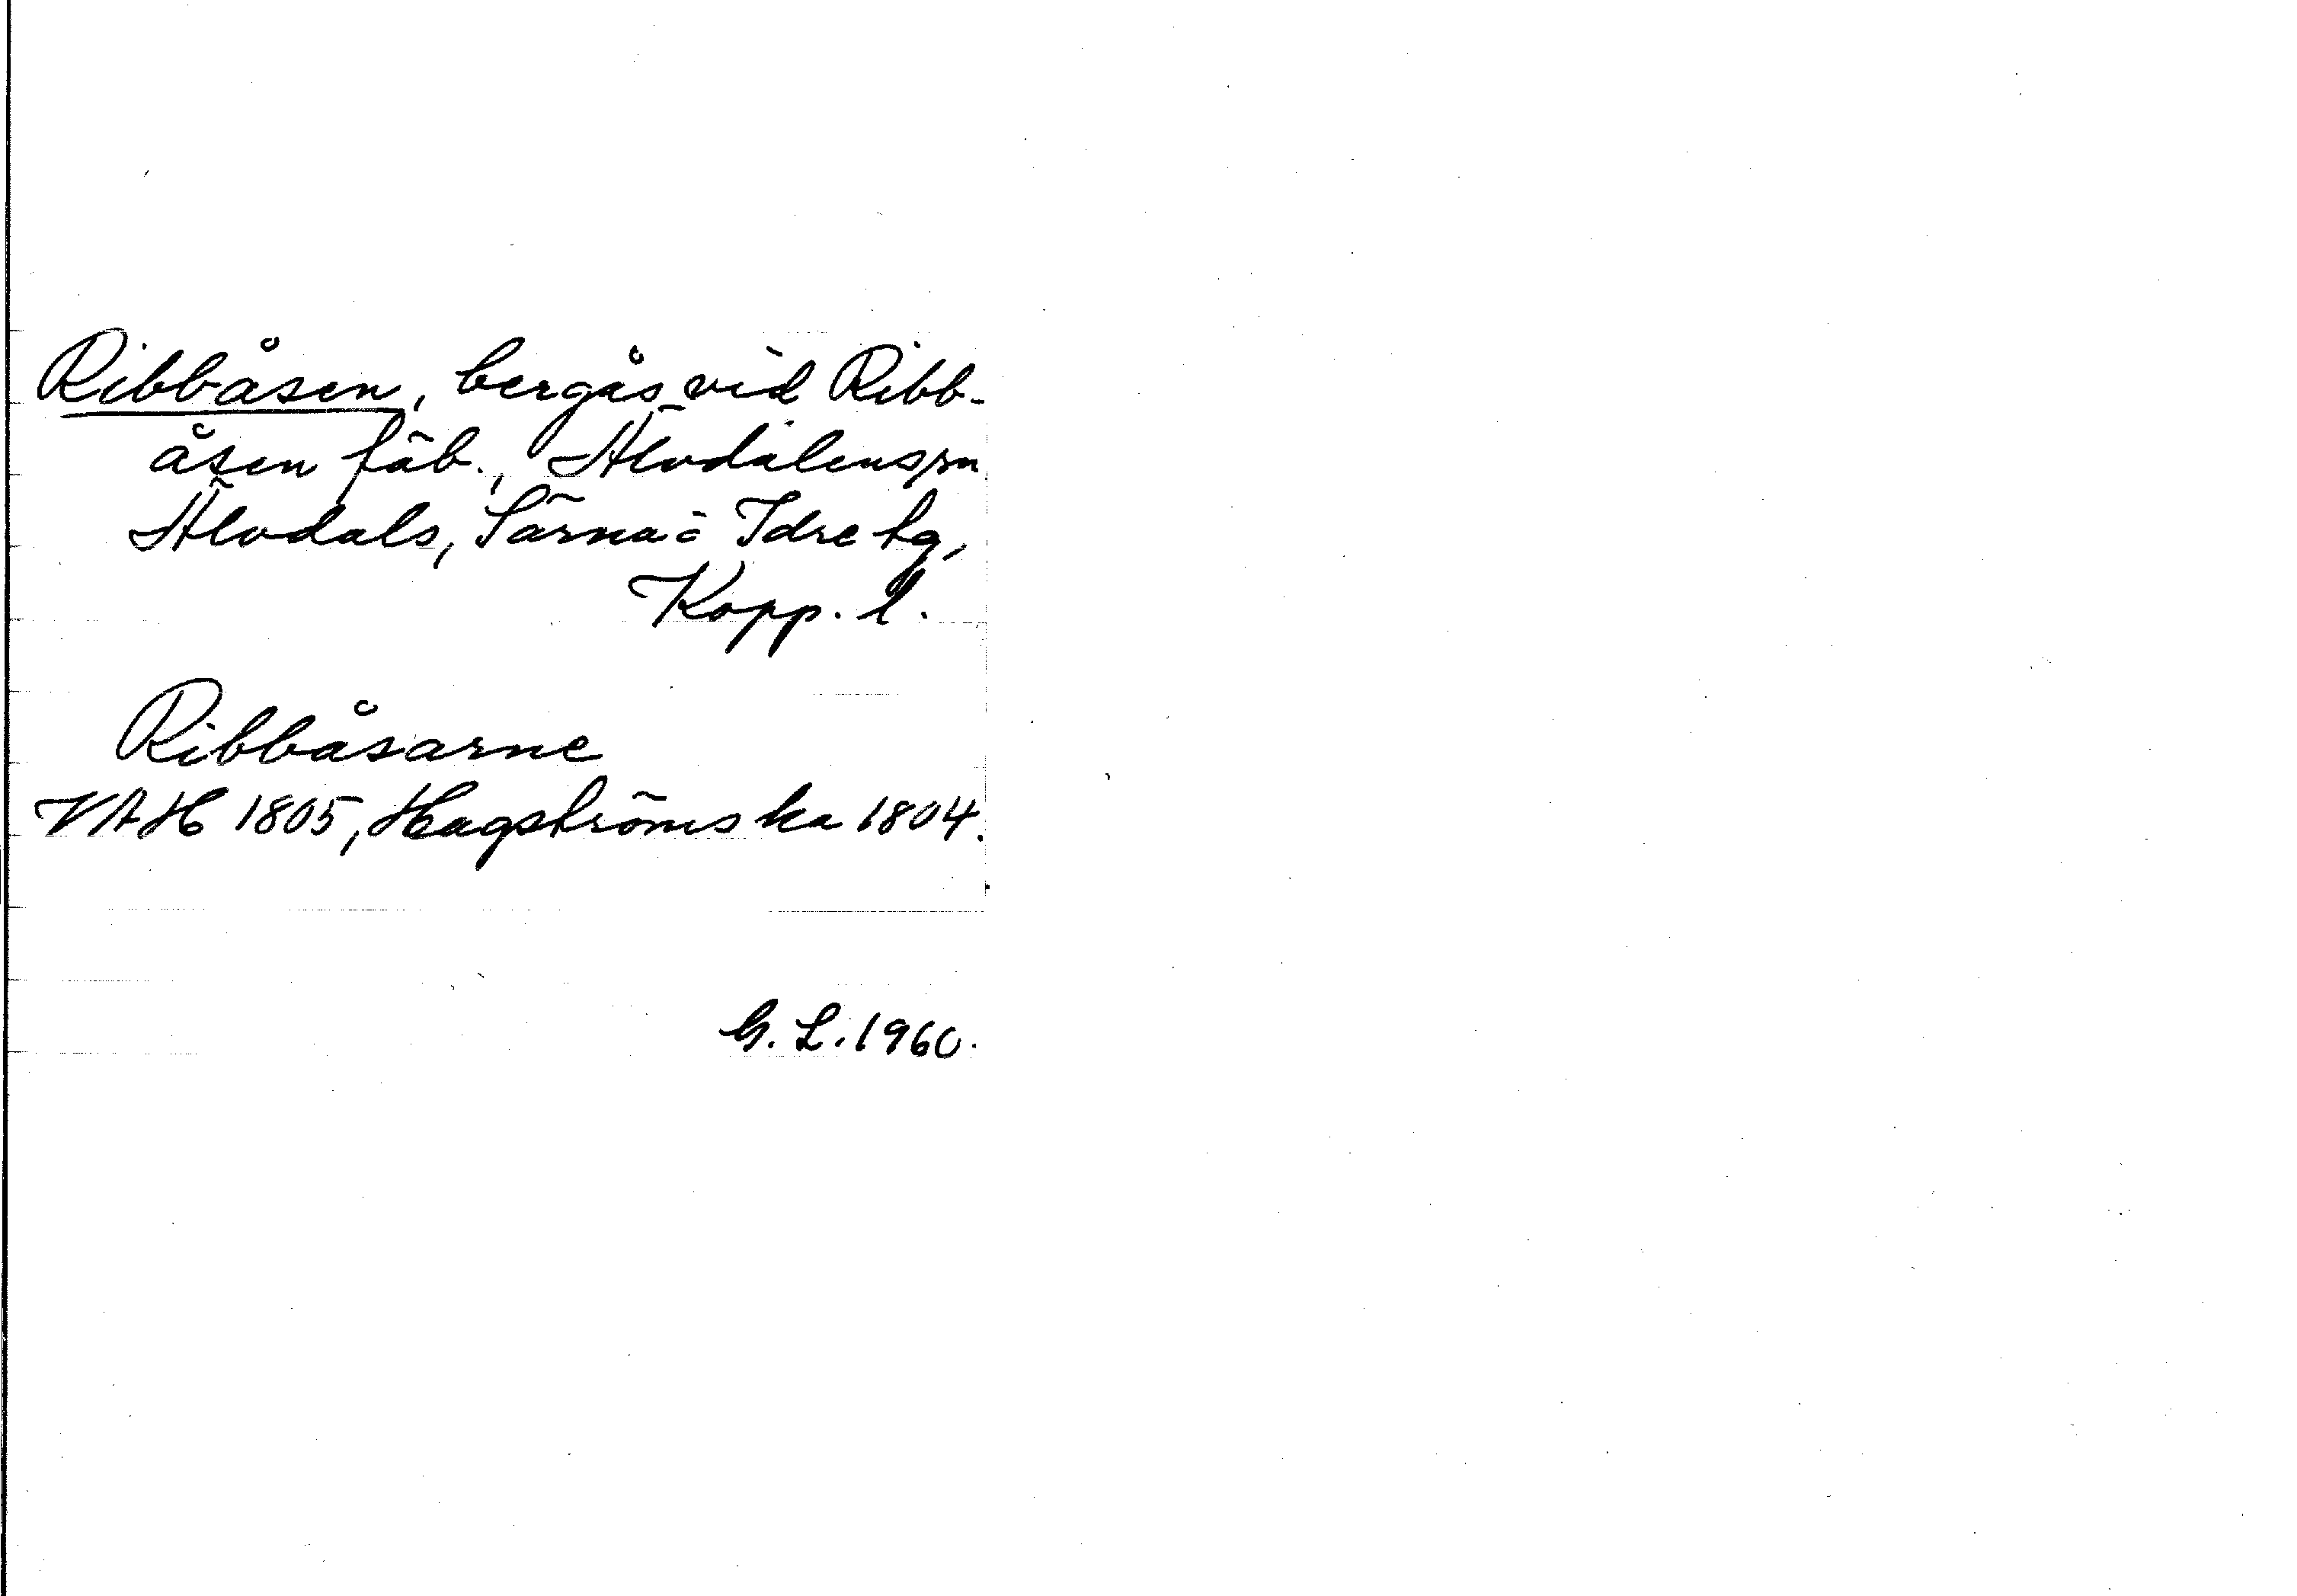 Ribbåsen, bergås vid Ribb-
åsen fäb., Älvdalens sn
Älvdals, Särna o Idre tg,
Kopp. l.
Ribbåsarne
VAH 1805, Hagströms ka 1804.
G. L. 1960.